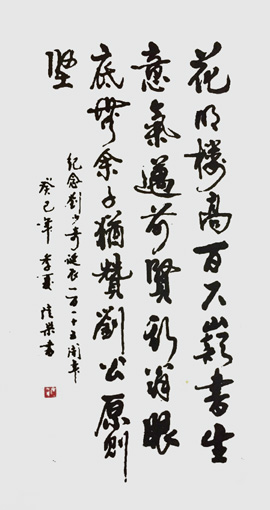 花明楼高百尺巅书生
意气迈前贤彭翁眼
底无余子犹赞刘公原则
坚
纪念刘少奇诞辰一百一十五周年
癸巳年季夏